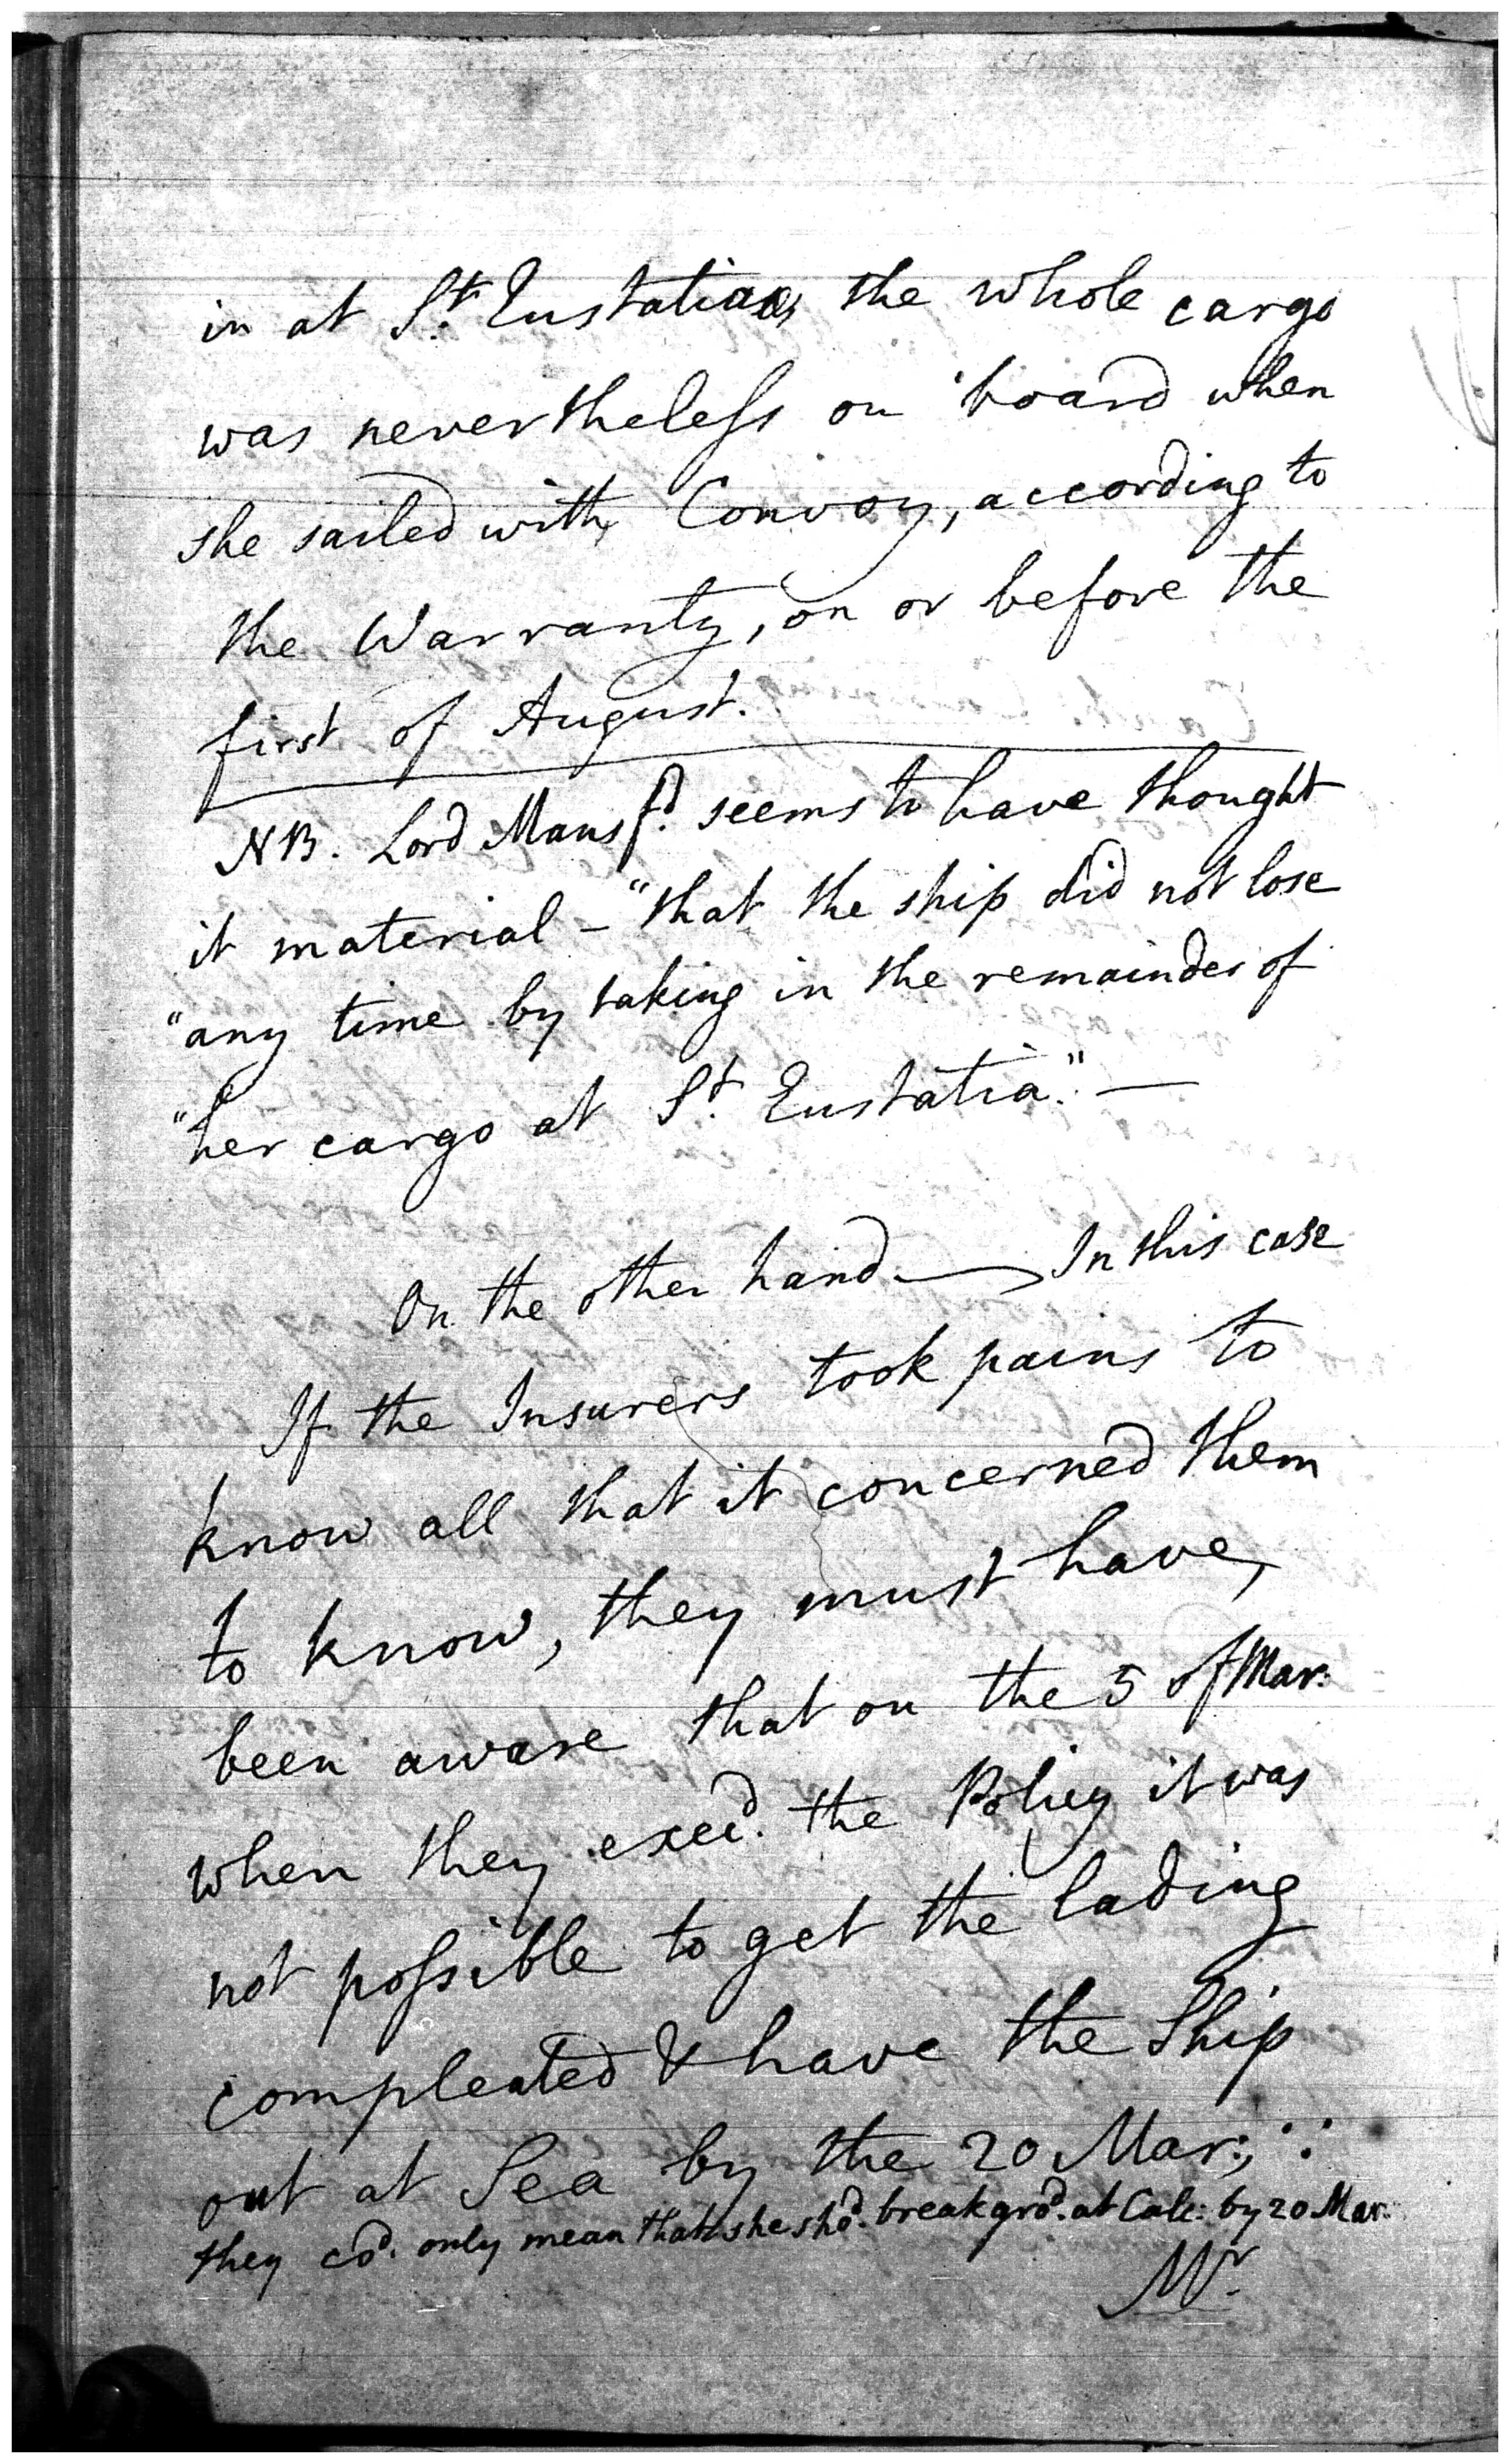 in at St. Eustatia, the whole cargo
was nevertheless on board when
she sailed with Convoy, according to
the Warranty, on or before the
first of August.
NB. Lord Mansfd. seems to have thought
it material – "that the ship did not lose
"any time by taking in the remainder of
"her cargo at St. Eustatia." —
On the other hand — In this case
If the Insurers took pains to
know all that it concerned them
to know, they must have,
been aware that on the 5 of Mar:
when they execd. the Policy it was
not possible to get the lading
compleated & have the Ship
out at Sea by the 20 Mar:, ∵
they cd. only mean that she shd. break grd. at Calc: by 20 Mar:
Mr.